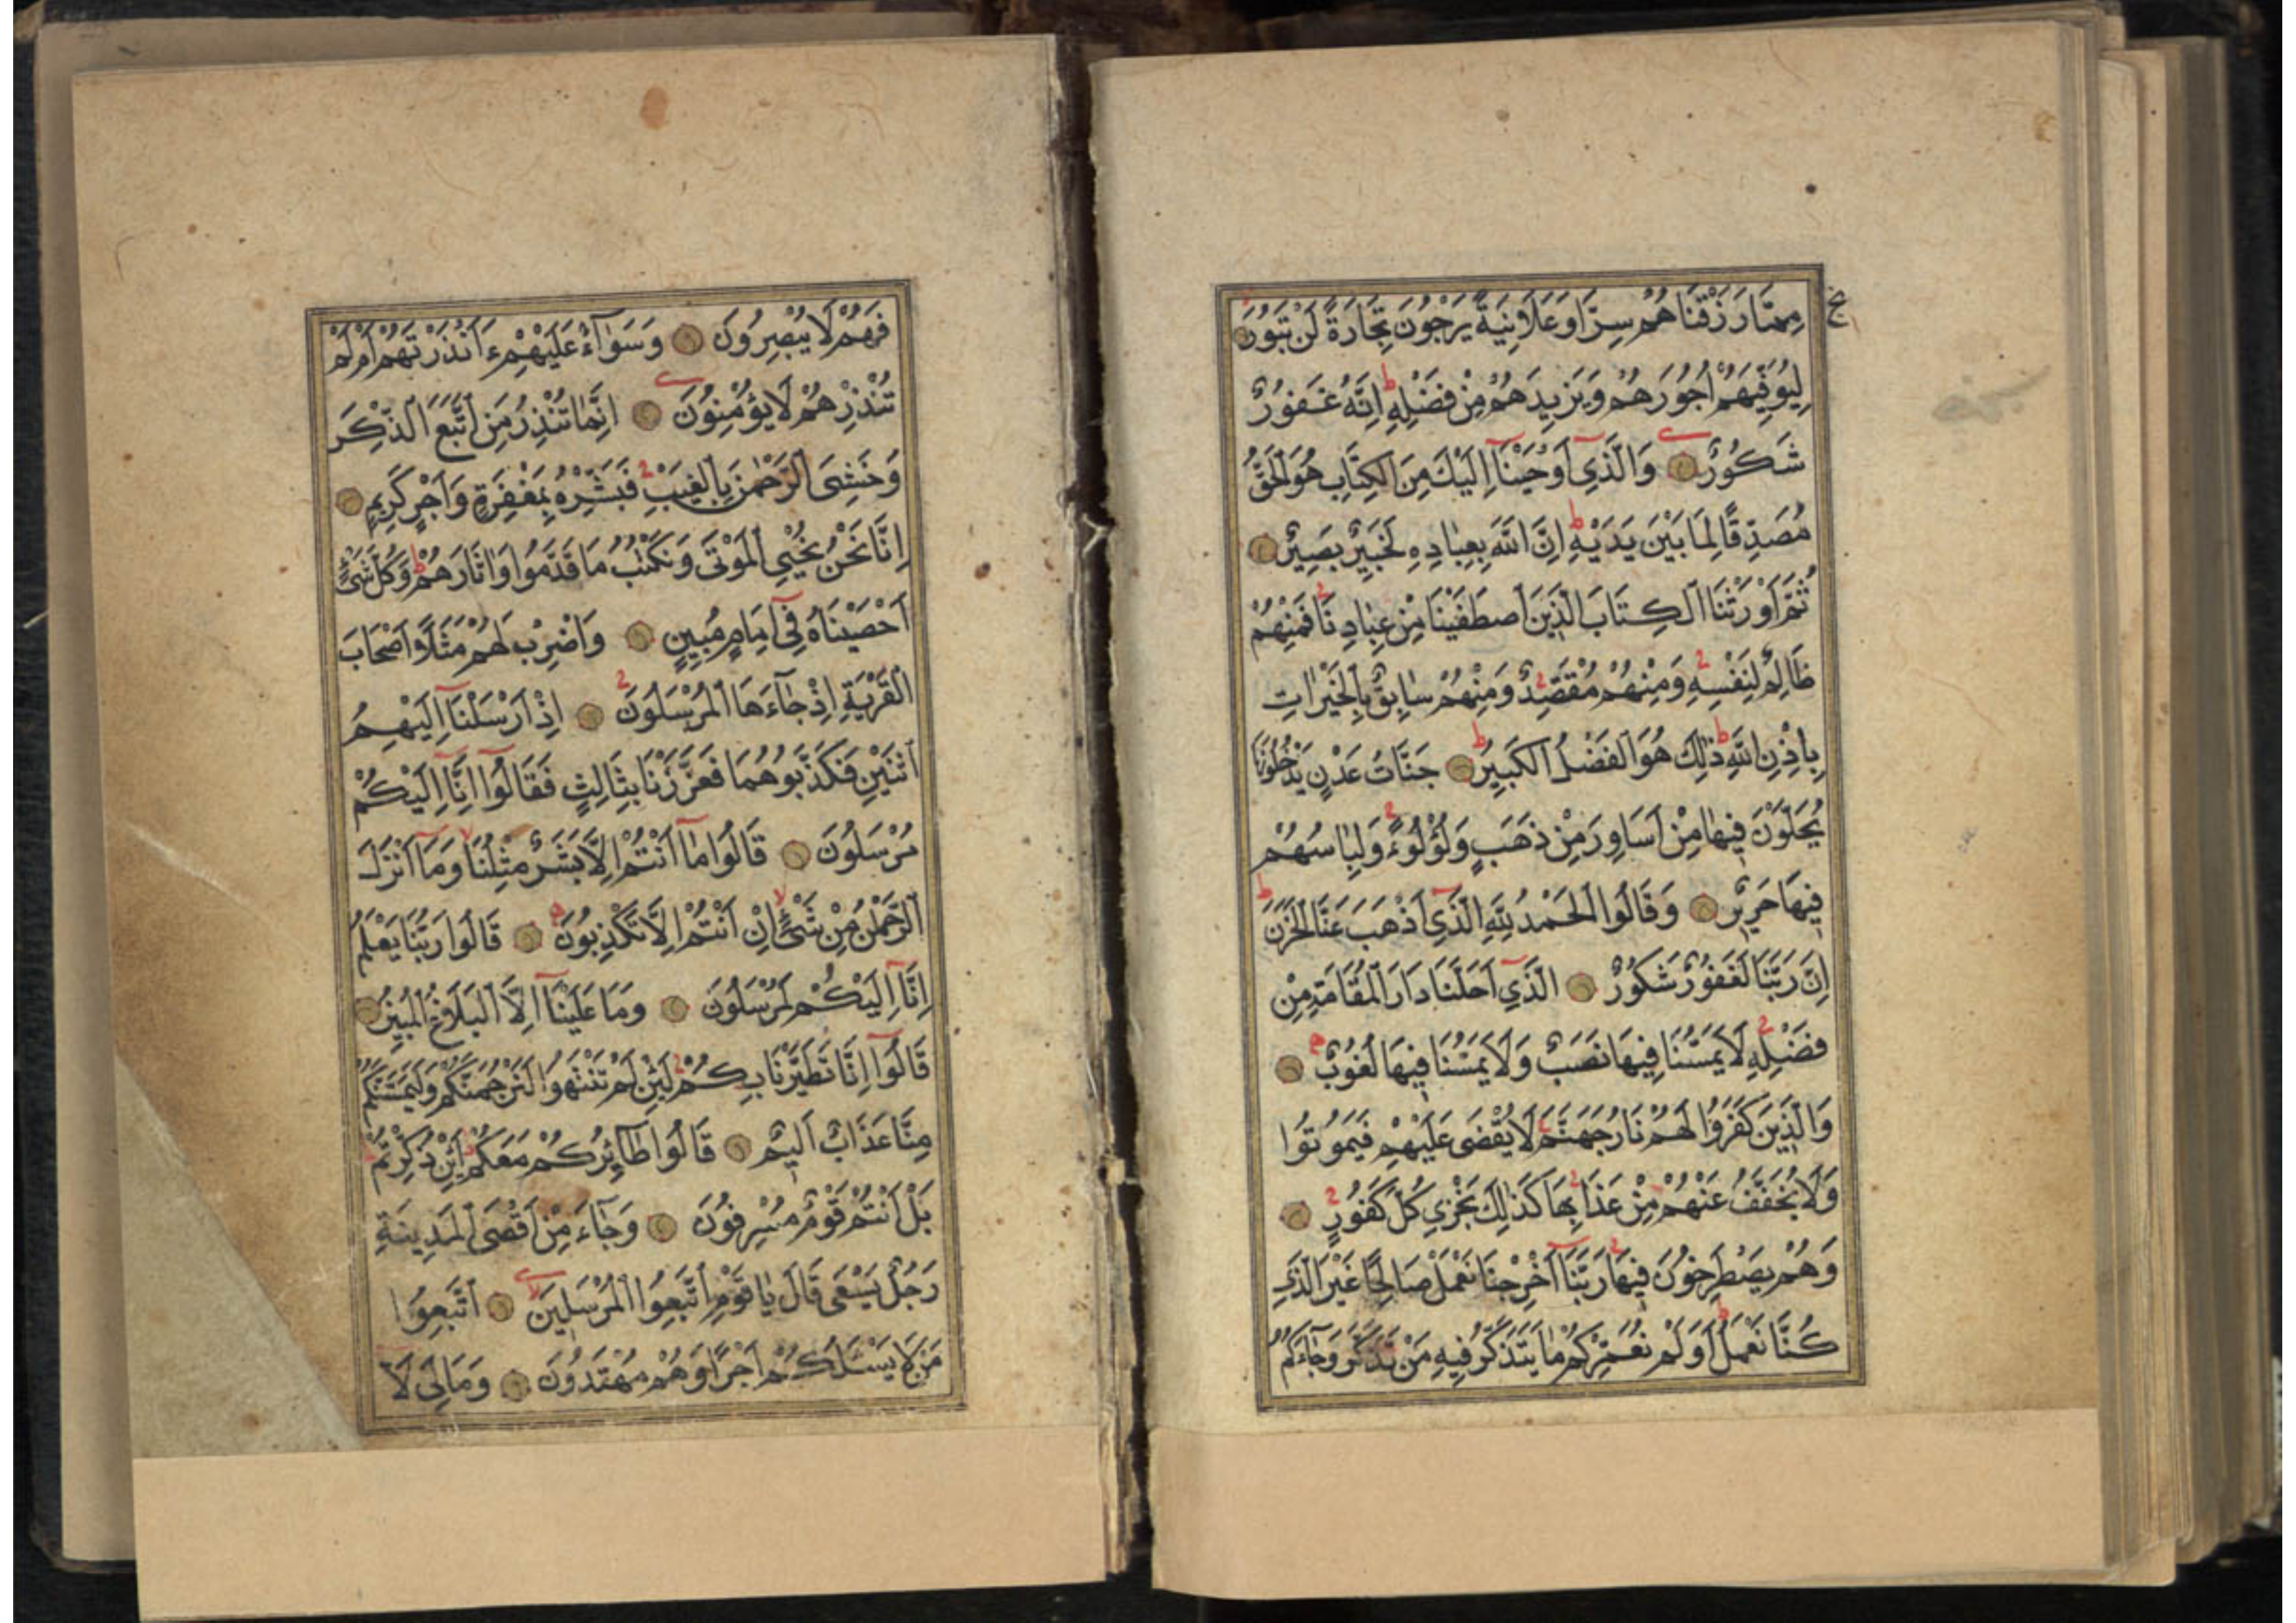 مِمَّا رَزَقْنَاهُمْ سِرًّا وَعَلَانِيَةً يَرْجُونَ تِجَارَةً لَنْ تَبُورَ
لِيُوَفِّيَهُمْ أُجُورَهُمْ وَيَزِيدَهُمْ مِنْ فَضْلِهِ اِنَّهُ غَفُورٌ
شَكُورٌ وَالَّذِي أَوْحَيْنَا اِلَيْكَ مِنَ الْكِتَابِ هُوَ الْحَقُّ
مُصَدِّقًا لِمَا بَيْنَ يَدَيْهِ اِنَّ اللّٰهَ بِعِبَادِهِ لَخَبِيرٌ بَصِيرٌ
ثُمَّ أَوْرَثْنَا الْكِتَابَ الَّذِينَ اصْطَفَيْنَا مِنْ عِبَادِنَا فَمِنْهُمْ
ظَالِمٌ لِنَفْسِهِ وَمِنْهُمْ مُقْتَصِدٌ وَمِنْهُمْ سَابِقٌ بِالْخَيْرَاتِ
بِاِذْنِ اللّٰهِ ذٰلِكَ هُوَ الْفَضْلُ الْكَبِيرُ جَنَّاتُ عَدْنٍ يَدْخُلُونَهَا
يُحَلَّوْنَ فِيهَا مِنْ أَسَاوِرَ مِنْ ذَهَبٍ وَلُؤْلُوءًا وَلِبَاسُهُمْ
فِيهَا حَرِيرٌ وَقَالُوا الْحَمْدُ لِلّٰهِ الَّذِي أَذْهَبَ عَنَّا الْحَزَنَ
اِنَّ رَبَّنَا لَغَفُورٌ شَكُورٌ الَّذِي أَحَلَّنَا دَارَ الْمُقَامَةِ مِنْ
فَضْلِهِ لَا يَمَسُّنَا فِيهَا نَصَبٌ وَلَا يَمَسُّنَا فِيهَا لُغُوبٌ
وَالَّذِينَ كَفَرُوا لَهُمْ نَارُ جَهَنَّمَ لَا يُقْضَى عَلَيْهِمْ فَيَمُوتُوا
وَلَا يُخَفَّفُ عَنْهُمْ مِنْ عَذَابِهَا كَذٰلِكَ نَجْزِي كُلَّ كَفُورٍ
وَهُمْ يَصْطَرِخُونَ فِيهَا رَبَّنَا أَخْرِجْنَا نَعْمَلْ صَالِحًا غَيْرَ الَّذِي
كُنَّا نَعْمَلُ أَوَلَمْ نُعَمِّرْكُمْ مَا يَتَذَكَّرُ فِيهِ مَنْ تَذَكَّرَ وَجَاءَكُمُ
فَهُمْ لَا يُبْصِرُونَ وَسَوَاءٌ عَلَيْهِمْ ءَأَنْذَرْتَهُمْ أَمْ لَمْ
تُنْذِرْهُمْ لَا يُؤْمِنُونَ اِنَّمَا تُنْذِرُ مَنِ اتَّبَعَ الذِّكْرَ
وَخَشِيَ الرَّحْمٰنَ بِالْغَيْبِ فَبَشِّرْهُ بِمَغْفِرَةٍ وَأَجْرٍ كَرِيمٍ
اِنَّا نَحْنُ نُحْيِي الْمَوْتَى وَنَكْتُبُ مَا قَدَّمُوا وَاٰثَارَهُمْ وَكُلَّ شَيْءٍ
أَحْصَيْنَاهُ فِي اِمَامٍ مُبِينٍ وَاضْرِبْ لَهُمْ مَثَلًا أَصْحَابَ
الْقَرْيَةِ اِذْ جَاءَهَا الْمُرْسَلُونَ اِذْ أَرْسَلْنَا اِلَيْهِمُ
اثْنَيْنِ فَكَذَّبُوهُمَا فَعَزَّزْنَا بِثَالِثٍ فَقَالُوا اِنَّا اِلَيْكُمْ
مُرْسَلُونَ قَالُوا مَا أَنْتُمْ اِلَّا بَشَرٌ مِثْلُنَا وَمَا أَنْزَلَ
الرَّحْمٰنُ مِنْ شَيْءٍ اِنْ أَنْتُمْ اِلَّا تَكْذِبُونَ قَالُوا رَبُّنَا يَعْلَمُ
اِنَّا اِلَيْكُمْ لَمُرْسَلُونَ وَمَا عَلَيْنَا اِلَّا الْبَلَاغُ الْمُبِينُ
قَالُوا اِنَّا تَطَيَّرْنَا بِكُمْ لَئِنْ لَمْ تَنْتَهُوا لَنَرْجُمَنَّكُمْ وَلَيَمَسَّنَّكُمْ
مِنَّا عَذَابٌ أَلِيمٌ قَالُوا طَائِرُكُمْ مَعَكُمْ أَئِنْ ذُكِّرْتُمْ
بَلْ أَنْتُمْ قَوْمٌ مُسْرِفُونَ وَجَاءَ مِنْ أَقْصَى الْمَدِينَةِ
رَجُلٌ يَسْعَى قَالَ يَا قَوْمِ اتَّبِعُوا الْمُرْسَلِينَ اتَّبِعُوا
مَنْ لَا يَسْئَلُكُمْ أَجْرًا وَهُمْ مُهْتَدُونَ وَمَا لِيَ لَا